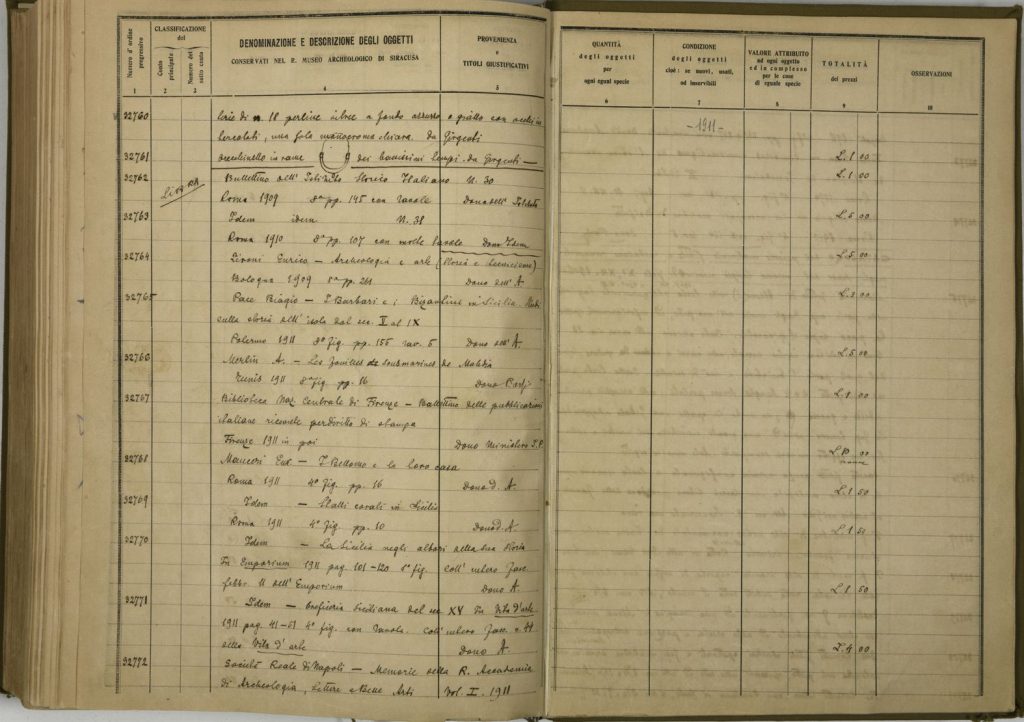 Numero d'ordine progressivo
CLASSIFICAZIONE
del
Conto principale
Numero del sotto conto
DENOMINAZIONE E DESCRIZIONE DEGLI OGGETTI
CONSERVATI NEL R. MUSEO ARCHEOLOGICO DI SIRACUSA
PROVENIENZA
e
TITOLI GIUSTIFICATIVI
QUANTITÀ
degli oggetti
per
ogni egual specie
CONDIZIONE
degli oggetti
cioè: se nuovi, usati,
od inservibili
VALORE ATTRIBUITO
ad ogni oggetto
ed in complesso
per le cose
di eguale specie
TOTALITÀ
dei prezzi
OSSERVAZIONI
1 2 3 4 5 6 7 8 9 10
- 1911 -
32760 Serie di n. 18 perline vitree a fondo azzurro o giallo con occhi in
, una sola monocroma chiara. da Girgenti
32761 orecchinetto in rame dei bassissimi tempi. da Girgenti — L. 1 00
32762 Bullettino dell' Istituto Storico Italiano N. 30 L. 1 00
Libri
Roma 1909 8° pp. 145 con tavole Dono dell' Istituto
32763 Idem idem N. 38 L. 5 00
Roma 1910 8° pp. 107 con molte tavole Dono Idem
32764 Enrico — Archeologia e arte (Storia e ) L. 5 00
Bologna 1909 8° pp. 261 Dono dell' A.
32765 Pace Biagio — I Barbari e i Bizantini in Sicilia. Studi L. 3 00
sulla storia dell' isola dal sec. V al IX
Palermo 1911 8° fig. pp. 155 tav. 5 Dono dell' A.
32766 Merlin A. — Les fouilles sousmarines de Mahdia L. 5 00
Tunis 1911 8° fig. pp. 16 Dono
32767 Biblioteca Naz. Centrale di Firenze — Bollettino delle pubblicazioni L. 1 00
italiane ricevute per diritto di stampa
Firenze 1911 in poi Dono Ministero I. P.
32768 Mauceri Enr. — I Bellomo e la loro casa
Roma 1911 4° fig. pp. 16 Dono d. A. L. 1 50
32769 Idem — Stalli corali in Sicilia
Roma 1911 4° fig. pp. 10 Dono d. A. L. 1 50
32770 Idem — La Sicilia negli albori della sua storia
In Emporium 1911 pag. 101-120 fig. Coll' intero fasc.
febbr. 11 dell' Emporium Dono A. L. 1 50
32771 Idem — Oreficeria Siciliana del sec XV In Vita d'arte
1911 pag. 41-61 4° fig. con tavole. Coll' intero fasc. n. 44
della Vita d'arte Dono A. L. 4 00
32772 Società Reale di Napoli — Memorie della R. Accademia
di Archeologia, Lettere e Belle Arti Vol. I. 1911